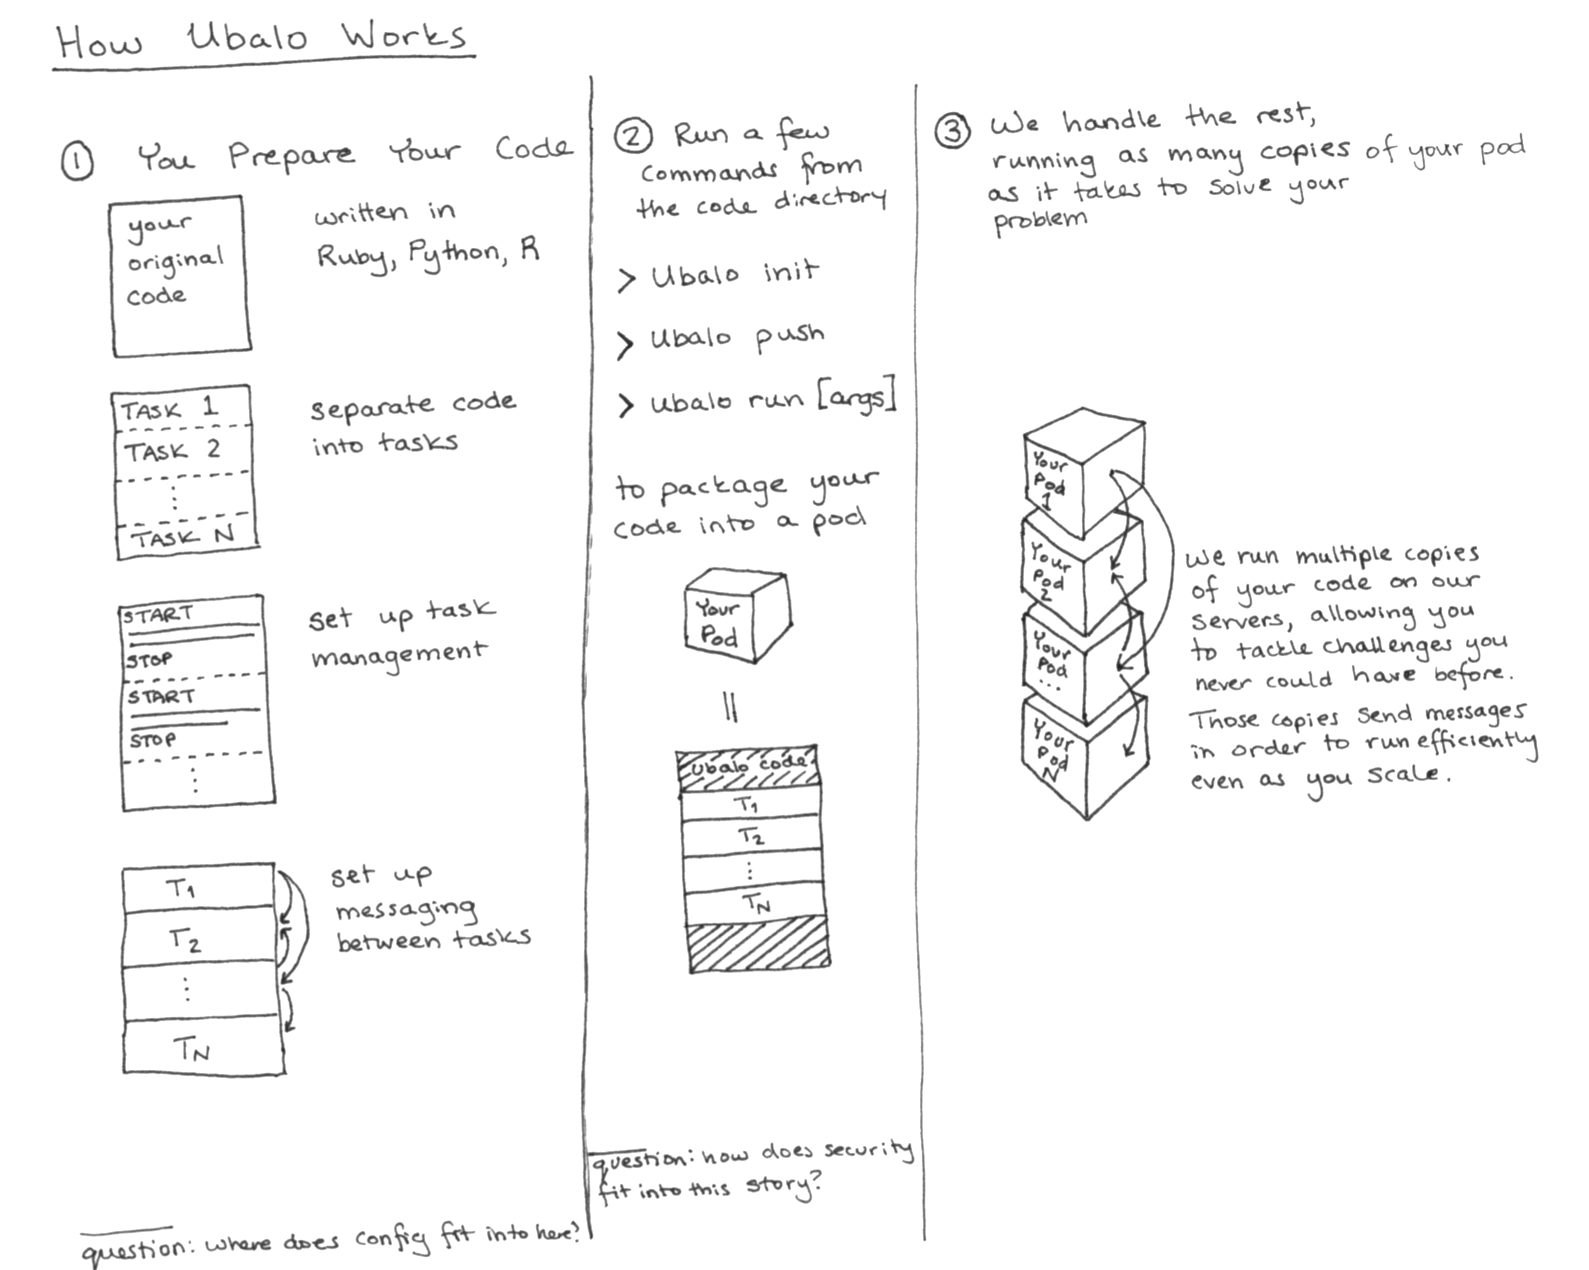 How Ubalo Works
① You Prepare Your Code
your
original
code
written in
Ruby, Python, R
TASK 1
TASK 2
⋮
TASK N
separate code
into tasks
START
STOP
START
STOP
⋮
set up task
management
T1
T2
⋮
TN
set up
messaging
between tasks
question: where does config fit into here?
② Run a few
commands from
the code directory
> Ubalo init
> Ubalo push
> ubalo run [args]
to package your
code into a pod
Your
Pod
||
Ubalo code
T1
T2
⋮
TN
question: how does security
fit into this story?
③ We handle the rest,
running as many copies of your pod
as it takes to solve your
problem
Your
Pod
1
Your
Pod
2
Your
Pod
...
Your
Pod
N
We run multiple copies
of your code on our
servers, allowing you
to tackle challenges you
never could have before.
Those copies send messages
in order to run efficiently
even as you scale.